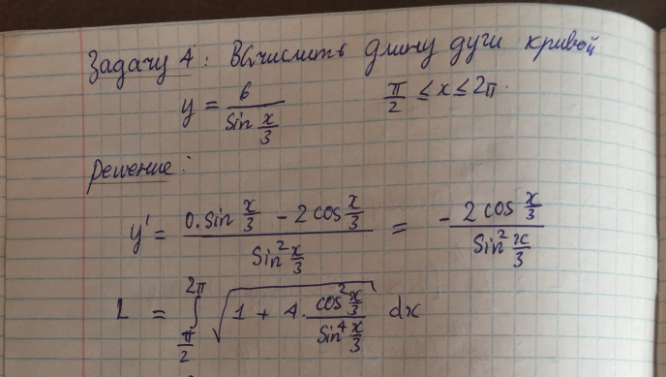 Задачу 4: Вычислить длину дуги кривой
y = 6 / sin x/3   π/2 ≤ x ≤ 2π.
Решение:
y' = (0·sin x/3 − 2 cos x/3) / sin² x/3 = −2 cos x/3 / sin² x/3
L = ∫_{π/2}^{2π} √(1 + 4 · cos² x/3 / sin⁴ x/3) dx